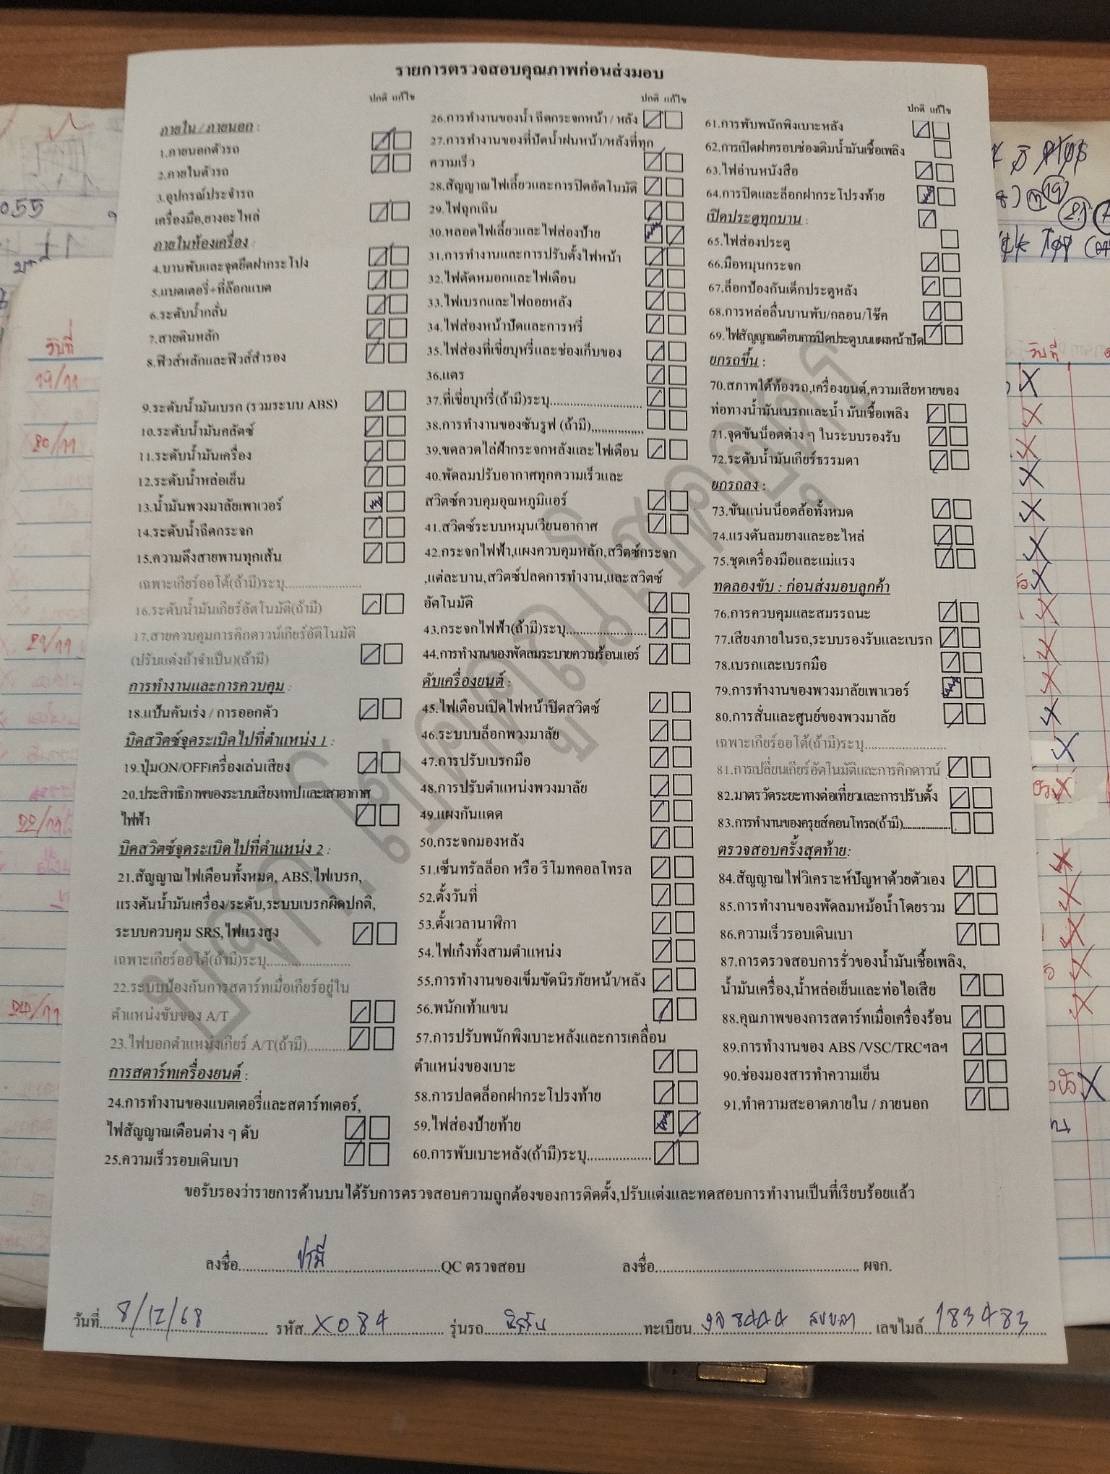 รายการตรวจสอบคุณภาพก่อนส่งมอบ
ปกติ แก้ไข
ภายใน / ภายนอก :
1.ภายนอกตัวรถ
2.ภายในตัวรถ
3.อุปกรณ์ประจำรถ
เครื่องมือ,ยางอะไหล่
ภายในห้องเครื่อง
4.บานพับและจุดยึดฝากระโปง
5.แบตเตอรี่+ที่ล๊อกแบต
6.ระดับน้ำกลั่น
7.สายดินหลัก
8.ฟิวส์หลักและฟิวส์สำรอง
9.ระดับน้ำมันเบรก (รวมระบบ ABS)
10.ระดับน้ำมันคลัตซ์
11.ระดับน้ำมันเครื่อง
12.ระดับน้ำหล่อเย็น
13.น้ำมันพวงมาลัยเพาเวอร์
14.ระดับน้ำฉีดกระจก
15.ความตึงสายพานทุกเส้น
เฉพาะเกียร์ออโต้(ถ้ามี)ระบุ
16.ระดับน้ำมันเกียร์อัตโนมัติ(ถ้ามี)
17.สายควบคุมการคิกดาวน์เกียร์อัตโนมัติ
(ปรับแต่งถ้าจำเป็น)(ถ้ามี)
การทำงานและการควบคุม :
18.แป้นคันเร่ง / การออกตัว
บิดสวิตซ์จุดระเบิดไปที่ตำแหน่ง 1 :
19.ปุ่มON/OFFเครื่องเล่นเสียง
20.ประสิทธิภาพของระบบเสียงเทปและเสาอากาศ
ไฟฟ้า
บิดสวิตซ์จุดระเบิดไปที่ตำแหน่ง 2 :
21.สัญญาณไฟเตือนทั้งหมด, ABS,ไฟเบรก,
แรงดันน้ำมันเครื่อง/ระดับ,ระบบเบรกผิดปกติ,
ระบบควบคุม SRS,ไฟแรงสูง
เฉพาะเกียร์ออโต้(ถ้ามี)ระบุ
22.ระบบป้องกันการสตาร์ทเมื่อเกียร์อยู่ใน
ตำแหน่งขับของ A/T
23.ไฟบอกตำแหน่งเกียร์ A/T(ถ้ามี)
การสตาร์ทเครื่องยนต์ :
24.การทำงานของแบตเตอรี่และสตาร์ทเตอร์,
ไฟสัญญาณเตือนต่าง ๆ ดับ
25.ความเร็วรอบเดินเบา
ปกติ แก้ไข
26.การทำงานของน้ำ ฉีดกระจกหน้า / หลัง
27.การทำงานของที่ปัดน้ำฝนหน้า/หลังที่ทุก
ความเร็ว
28.สัญญาณไฟเลี้ยวและการปิดอัตโนมัติ
29.ไฟฉุกเฉิน
30.หลอดไฟเลี้ยวและไฟส่องป้าย
31.การทำงานและการปรับตั้งไฟหน้า
32.ไฟตัดหมอกและไฟเตือน
33.ไฟเบรกและไฟถอยหลัง
34.ไฟส่องหน้าปัดและการหรี่
35.ไฟส่องที่เขี่ยบุหรี่และช่องเก็บของ
36.แตร
37.ที่เขี่ยบุหรี่(ถ้ามี)ระบุ
38.การทำงานของซันรูฟ (ถ้ามี)
39.ขดลวดไล่ฝ้ากระจกหลังและไฟเตือน
40.พัดลมปรับอากาศทุกความเร็วและ
สวิตซ์ควบคุมอุณหภูมิแอร์
41.สวิตซ์ระบบหมุนเวียนอากาศ
42.กระจกไฟฟ้า,แผงควบคุมหลัก,สวิตซ์กระจก
,แต่ละบาน,สวิตซ์ปลดการทำงาน,และสวิตซ์
อัตโนมัติ
43.กระจกไฟฟ้า(ถ้ามี)ระบุ
44.การทำงานของพัดลมระบายความร้อนแอร์
ดับเครื่องยนต์ :
45.ไฟเตือนเปิดไฟหน้าปิดสวิตซ์
46.ระบบบล็อกพวงมาลัย
47.การปรับเบรกมือ
48.การปรับตำแหน่งพวงมาลัย
49.แผงกันแดด
50.กระจกมองหลัง
51.เซ็นทรัลล็อก หรือ รีโมทคอลโทรล
52.ตั้งวันที่
53.ตั้งเวลานาฬิกา
54.ไฟเก๋งทั้งสามตำแหน่ง
55.การทำงานของเข็มขัดนิรภัยหน้า/หลัง
56.พนักเท้าแขน
57.การปรับพนักพิงเบาะหลังและการเคลื่อน
ตำแหน่งของเบาะ
58.การปลดล็อกฝากระโปรงท้าย
59.ไฟส่องป้ายท้าย
60.การพับเบาะหลัง(ถ้ามี)ระบุ
ปกติ แก้ไข
61.การพับพนักพิงเบาะหลัง
62.การเปิดฝาครอบช่องเติมน้ำมันเชื้อเพลิง
63.ไฟอ่านหนังสือ
64.การปิดและล็อกฝากระโปรงท้าย
เปิดประตูทุกบาน :
65.ไฟส่องประตู
66.มือหมุนกระจก
67.ล็อกป้องกันเด็กประตูหลัง
68.การหล่อลื่นบานพับ/กลอน/โช๊ค
69.ไฟสัญญาณเตือนการปิดประตูบนแผงหน้าปัด
ยกรถขึ้น :
70.สภาพใต้ท้องรถ,เครื่องยนต์,ความเสียหายของ
ท่อทางน้ำมันเบรกและน้ำ มันเชื้อเพลิง
71.จุดขันน็อตต่าง ๆ ในระบบรองรับ
72.ระดับน้ำมันเกียร์ธรรมดา
ยกรถลง :
73.ขันแน่นน็อตล้อทั้งหมด
74.แรงดันลมยางและอะไหล่
75.ชุดเครื่องมือและแม่แรง
ทดลองขับ : ก่อนส่งมอบลูกค้า
76.การควบคุมและสมรรถนะ
77.เสียงภายในรถ,ระบบรองรับและเบรก
78.เบรกและเบรกมือ
79.การทำงานของพวงมาลัยเพาเวอร์
80.การสั่นและศูนย์ของพวงมาลัย
เฉพาะเกียร์ออโต้(ถ้ามี)ระบุ
81.การเปลี่ยนเกียร์อัตโนมัติและการคิกดาวน์
82.มาตรวัดระยะทางต่อเที่ยวและการปรับตั้ง
83.การทำงานของครุยส์คอนโทรล(ถ้ามี)
ตรวจสอบครั้งสุดท้าย:
84.สัญญาณไฟวิเคราะห์ปัญหาด้วยตัวเอง
85.การทำงานของพัดลมหม้อน้ำโดยรวม
86.ความเร็วรอบเดินเบา
87.การตรวจสอบการรั่วของน้ำมันเชื้อเพลิง,
น้ำมันเครื่อง,น้ำหล่อเย็นและท่อไอเสีย
88.คุณภาพของการสตาร์ทเมื่อเครื่องร้อน
89.การทำงานของ ABS /VSC/TRCฯลฯ
90.ช่องมองสารทำความเย็น
91.ทำความสะอาดภายใน / ภายนอก
ขอรับรองว่ารายการด้านบนได้รับการตรวจสอบความถูกต้องของการติดตั้ง,ปรับแต่งและทดสอบการทำงานเป็นที่เรียบร้อยแล้ว
ลงชื่อ ปามี QC ตรวจสอบ ลงชื่อ ผจก.
วันที่ 8/12/68 รหัส X084 รุ่นรถ ทะเบียน 8444 สงขลา เลขไมล์ 183483
055
วันที่
19/11
20/11
21/11
22/11
24/11
วันที่